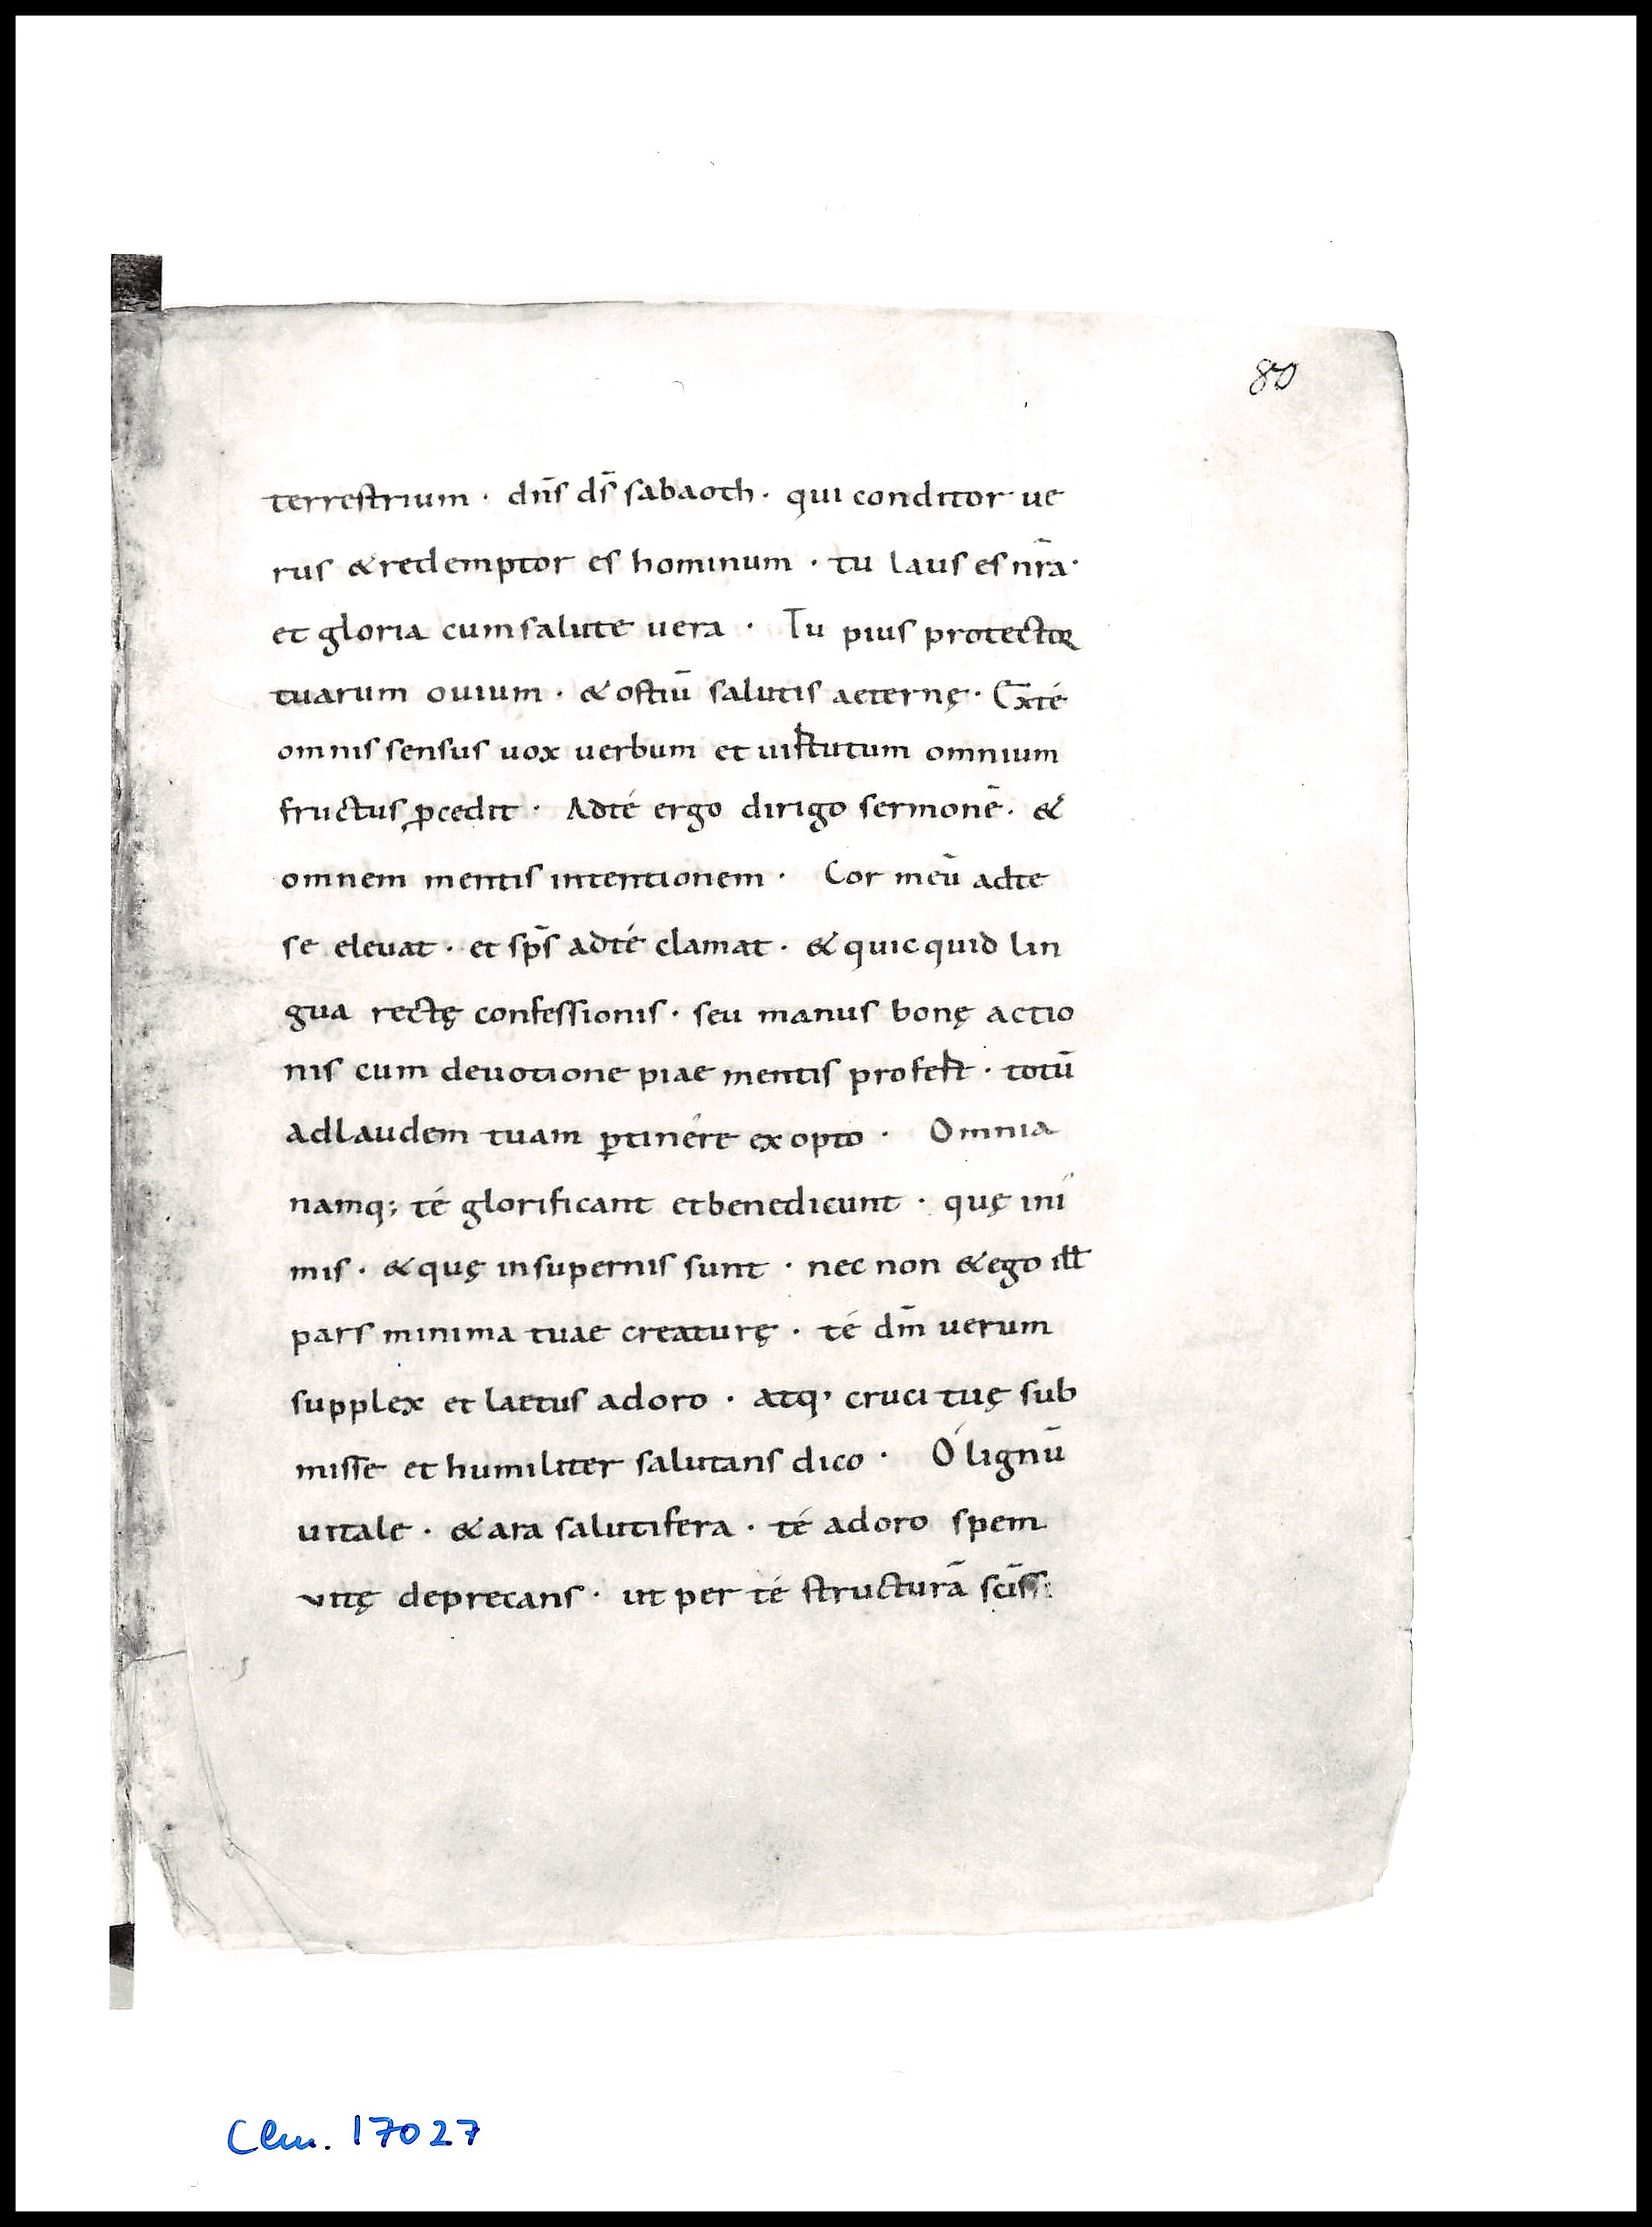 80
terrestrium · dn̄s ds̄ sabaoth · qui conditor ue
rus & redemptor es hominum · tu laus es nr̄a ·
et gloria cum salute uera · Tu pius protector
tuarum ouium · & ostiū salutis aeternę · Exte
omnis sensus uox uerbum et uirtutum omnium
fructus ꝓcedit · Adté ergo dirigo sermonē · &
omnem mentis intentionem · Cor meū adte
se eleuat · et sp̄s adté clamat · & quicquid lin
gua rectę confessionis · seu manus bonę actio
nis cum deuotione piae mentis profert · totū
adlaudem tuam ꝑtinére exopto · Omnia
namq; té glorificant et benedicunt · quę ini
mis · & quę insupernis sunt · nec non & ego ill̄
pars minima tuae creaturę · té dm̄ uerum
supplex et laetus adoro · atq, cruci tuę sub
misse et humiliter salutans dico · Ó lignū
uitale · & ara salutifera · té adoro spem
vitę deprecans · ut per té structurā scīss
Clm. 17027